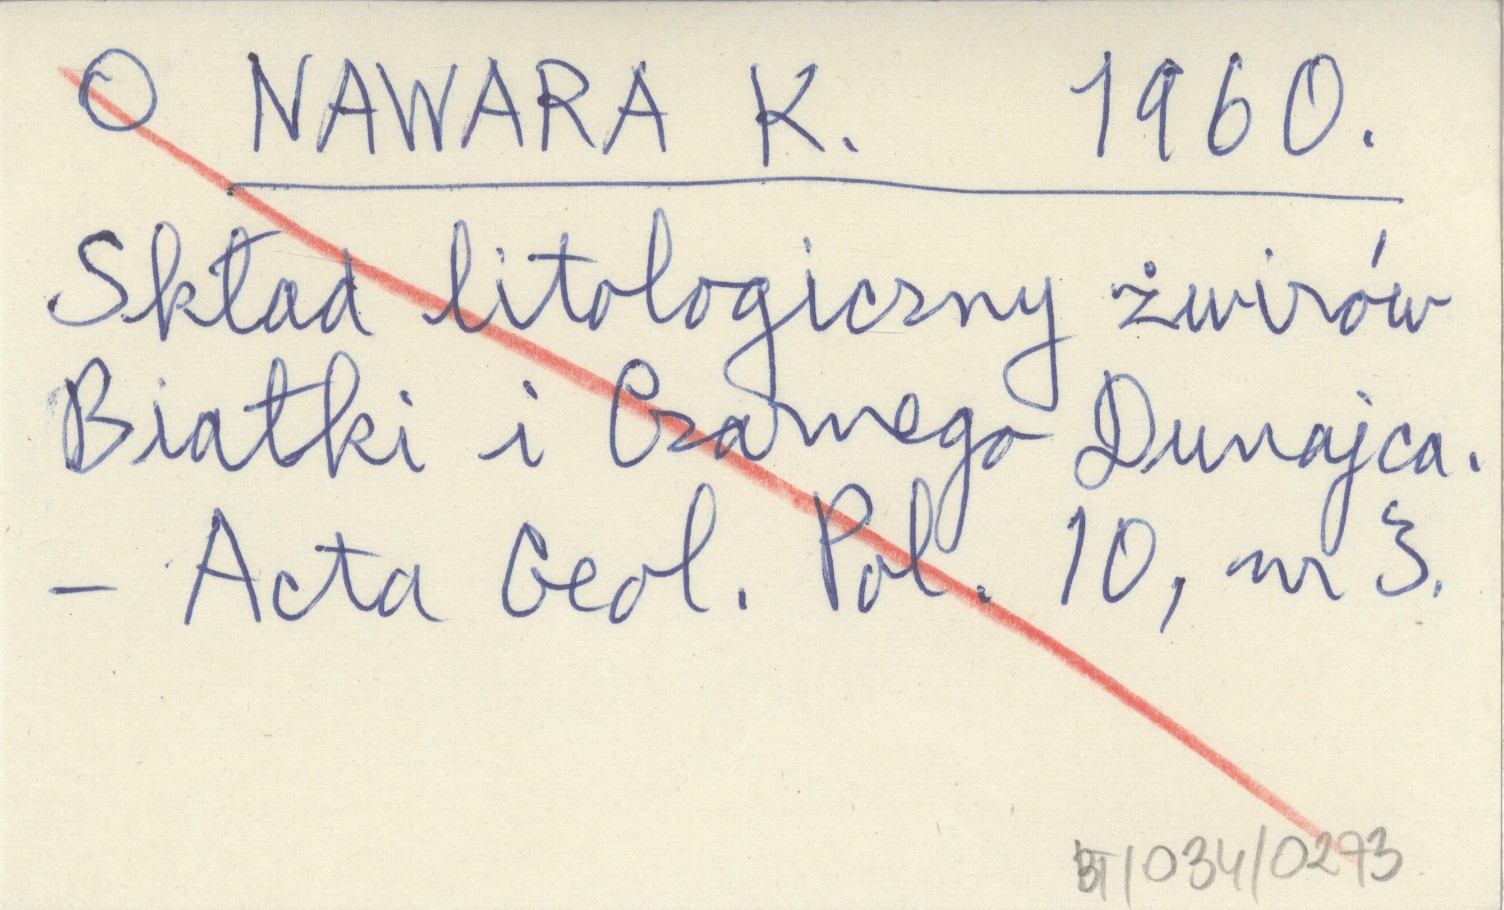 O NAWARA K. 1960.
Skład litologiczny żwirów
Białki i Czarnego Dunajca.
- Acta Geol. Pol. 10, nr 3.
BT/034/0273